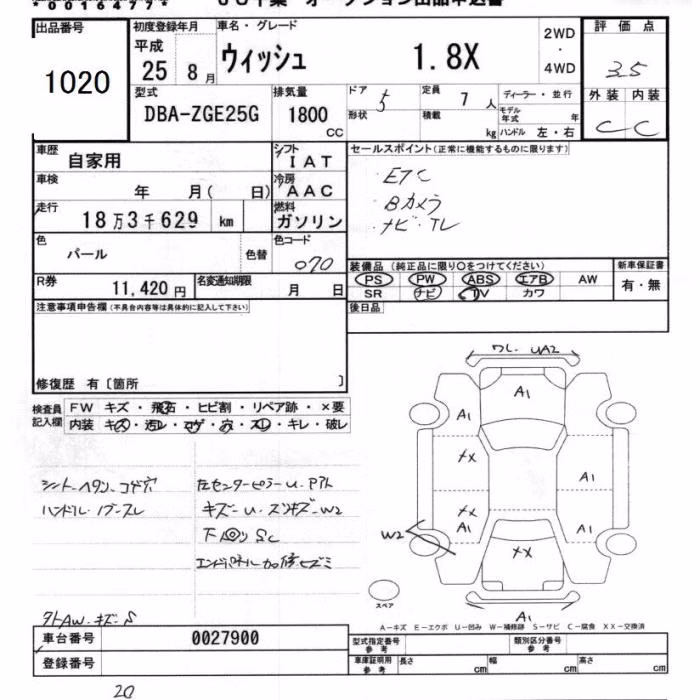 出品番号
1020
初度登録年月
平成
25 8月
車名・グレード
ウィッシュ 1.8X
2WD
・
4WD
評価点
3.5
外装 内装
C C
型式
DBA-ZGE25G
排気量
1800
CC
ドア 5
定員 7 人
形状
積載 kg
ディーラー・並行
モデル年式 年
ハンドル 左・右
車歴
自家用
シフト
IAT
車検
年 月( 日)
冷房
AAC
走行
18万3千629 km
燃料
ガソリン
色
パール
色替
色コード
070
R券
11,420円
名変通知期限
月 日
セールスポイント(正常に機能するものに限ります)
ETC
Bカメラ
ナビ・TV
装備品(純正品に限り○をつけてください)
PS PW ABS エアB AW
SR ナビ TV カワ
新車保証書
有・無
後日品
注意事項申告欄(不具合内容等は具体的に記入して下さい)
修復歴 有〔箇所 〕
検査員記入欄
FW キズ・飛石・ヒビ割・リペア跡・×要
内装 キズ・汚レ・コゲ・穴・スレ・キレ・破レ
シート・ヘタリ・コゲ穴
ハンドル・ノブ・スレ
キズ・U・スリキズ・W2
外AW・キズ・S
ワレ・UA2
A1
A1
XX
A1
XX
A1
A1
W2
XX
A1
スペア
A-キズ E-エクボ U-凹み W-補修跡 S-サビ C-腐食 XX-交換済
車台番号
0027900
登録番号
型式指定番号
参考
類別区分番号
参考
車庫証明用
参考
長さ cm 幅 cm 高さ cm
20